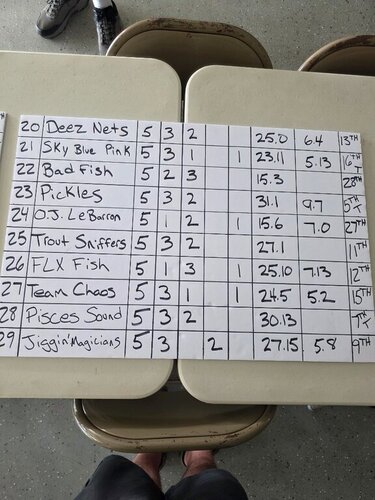 20 Deez Nets 5 3 2 25.0 6.4 13TH
21 Sky Blue Pink 5 3 1 1 23.11 5.13 16TH
22 Bad Fish 5 2 3 15.3 28TH
23 Pickles 5 3 2 31.1 9.7 5TH
24 O.J. LeBarron 5 1 2 1 15.6 7.0 27TH
25 Trout Sniffers 5 3 2 27.1 11TH
26 FLX Fish 5 1 3 1 25.10 7.13 12TH
27 Team Chaos 5 3 1 1 24.5 5.2 15TH
28 Pisces Sound 5 3 2 30.13 7TH
29 Jiggin' Magicians 5 3 2 27.15 5.8 9TH